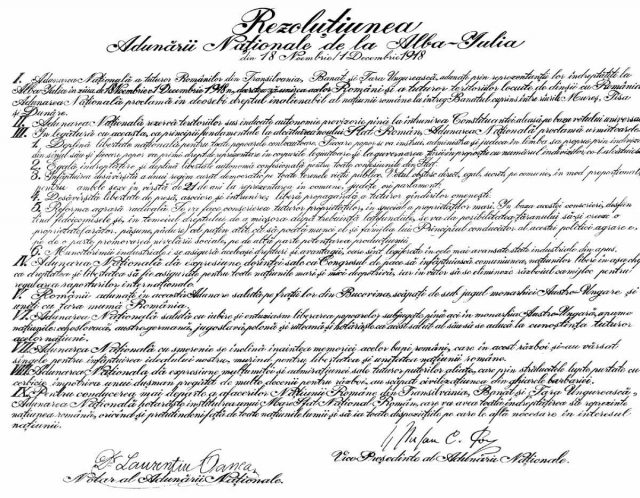 Rezoluțiunea
Adunării Naționale de la Alba-Iulia
din 18 Noembrie/1 Decembrie 1918
I. Adunarea Națională a tuturor Românilor din Transilvania, Banat și Țara Ungurească, adunați prin reprezentanții lor îndreptățiți la
Alba-Iulia în ziua de 18 Noembrie/1 Decembrie 1918, decretează unirea acelor Români și a tuturor teritoriilor locuite de dânșii cu România.
Adunarea Națională proclamă îndeosebi dreptul inalienabil al națiunii române la întreg Banatul cuprins între râurile Mureș, Tisa
și Dunăre.
II. Adunarea Națională rezervă teritoriilor sus indicate autonomie provizorie până la întrunirea Constituantei aleasă pe baza votului universal.
III. În legătură cu aceasta, ca principii fundamentale la alcătuirea noului Stat Român, Adunarea Națională proclamă următoarele:
1. Deplină libertate națională pentru toate popoarele conlocuitoare. Fiecare popor se va instrui, administra și judeca în limba sa proprie prin indivizi
din sânul său și fiecare popor va primi drept de reprezentare în corpurile legiuitoare și la guvernarea țării în proporție cu numărul indivizilor ce-l alcătuiesc.
2. Egală îndreptățire și deplină libertate autonomă confesională pentru toate confesiunile din Stat.
3. Înfăptuirea desăvârșită a unui regim curat democratic pe toate terenele vieții publice. Votul obștesc, direct, egal, secret, pe comune, în mod proporțional,
pentru ambele sexe, în vârstă de 21 de ani la reprezentarea în comune, județe ori parlament.
4. Desăvârșită libertate de presă, asociere și întrunire; libera propagandă a tuturor gândurilor omenești.
5. Reforma agrară radicală. Se va face conscrierea tuturor proprietăților, în special a proprietăților mari. În baza acestei conscrieri, desființând
fideicomisele și, în temeiul dreptului de a micșora după trebuință latifundiile, se va da posibilitatea țăranului să-și creeze o
proprietate (arător, pășune, pădure) cel puțin atât cât să poată munci el și familia lui. Principiul conducător al acestei politici agrare e
pe de o parte promovarea nivelării sociale, pe de altă parte potențarea producțiunii.
6. Muncitorimei industriale i se asigură aceleași drepturi și avantagii, care sunt legiferate în cele mai avansate state industriale din apus.
IV. Adunarea Națională dă expresiune dorinței sale, ca Congresul de pace să înfăptuiască comuniunea națiunilor libere în așa chip,
ca dreptatea și libertatea să fie asigurate pentru toate națiunile mari și mici deopotrivă, iar în viitor să se elimineze războiul ca mijloc pentru
regularea raporturilor internaționale.
V. Românii adunați în această Adunare salută pe frații lor din Bucovina, scăpați de sub jugul monarhiei Austro-Ungare și
uniți cu țara mamă România.
VI. Adunarea Națională salută cu iubire și entuziasm liberarea popoarelor subjugate până aci în monarhia Austro-Ungară, anume
națiunile: cehoslovacă, austrogermană, jugoslavă, polonă și ruteană și hotărăște ca acest salut al său să se aducă la cunoștința tuturor
acelor națiuni.
VII. Adunarea Națională cu smerenie se închină înaintea memoriei acelor bravi români, care în acest război și-au vărsat
sângele pentru înfăptuirea idealului nostru, murind pentru libertatea și unitatea națiunii române.
VIII. Adunarea Națională dă expresiune mulțumitei și admirațiunei sale tuturor puterilor aliate, care prin strălucitele lupte purtate cu
cerbicie împotriva unui dușman pregătit de multe decenii pentru război, au scăpat civilizațiunea din ghiarele barbariei.
IX. Pentru conducerea mai departe a afacerilor Națiunii Române din Transilvania, Banat și Țara Ungurească,
Adunarea Națională hotărăște instituirea unui Mare Sfat Național Român, care va avea toată îndreptățirea să reprezinte
națiunea română, oricând și pretutindeni față de toate națiunile lumii și să ia toate dispozițiile pe care le află necesare în interesul
națiunii.
Dr. Laurențiu Oanea
Notar al Adunării Naționale.
Vice Președinte al Adunării Naționale.